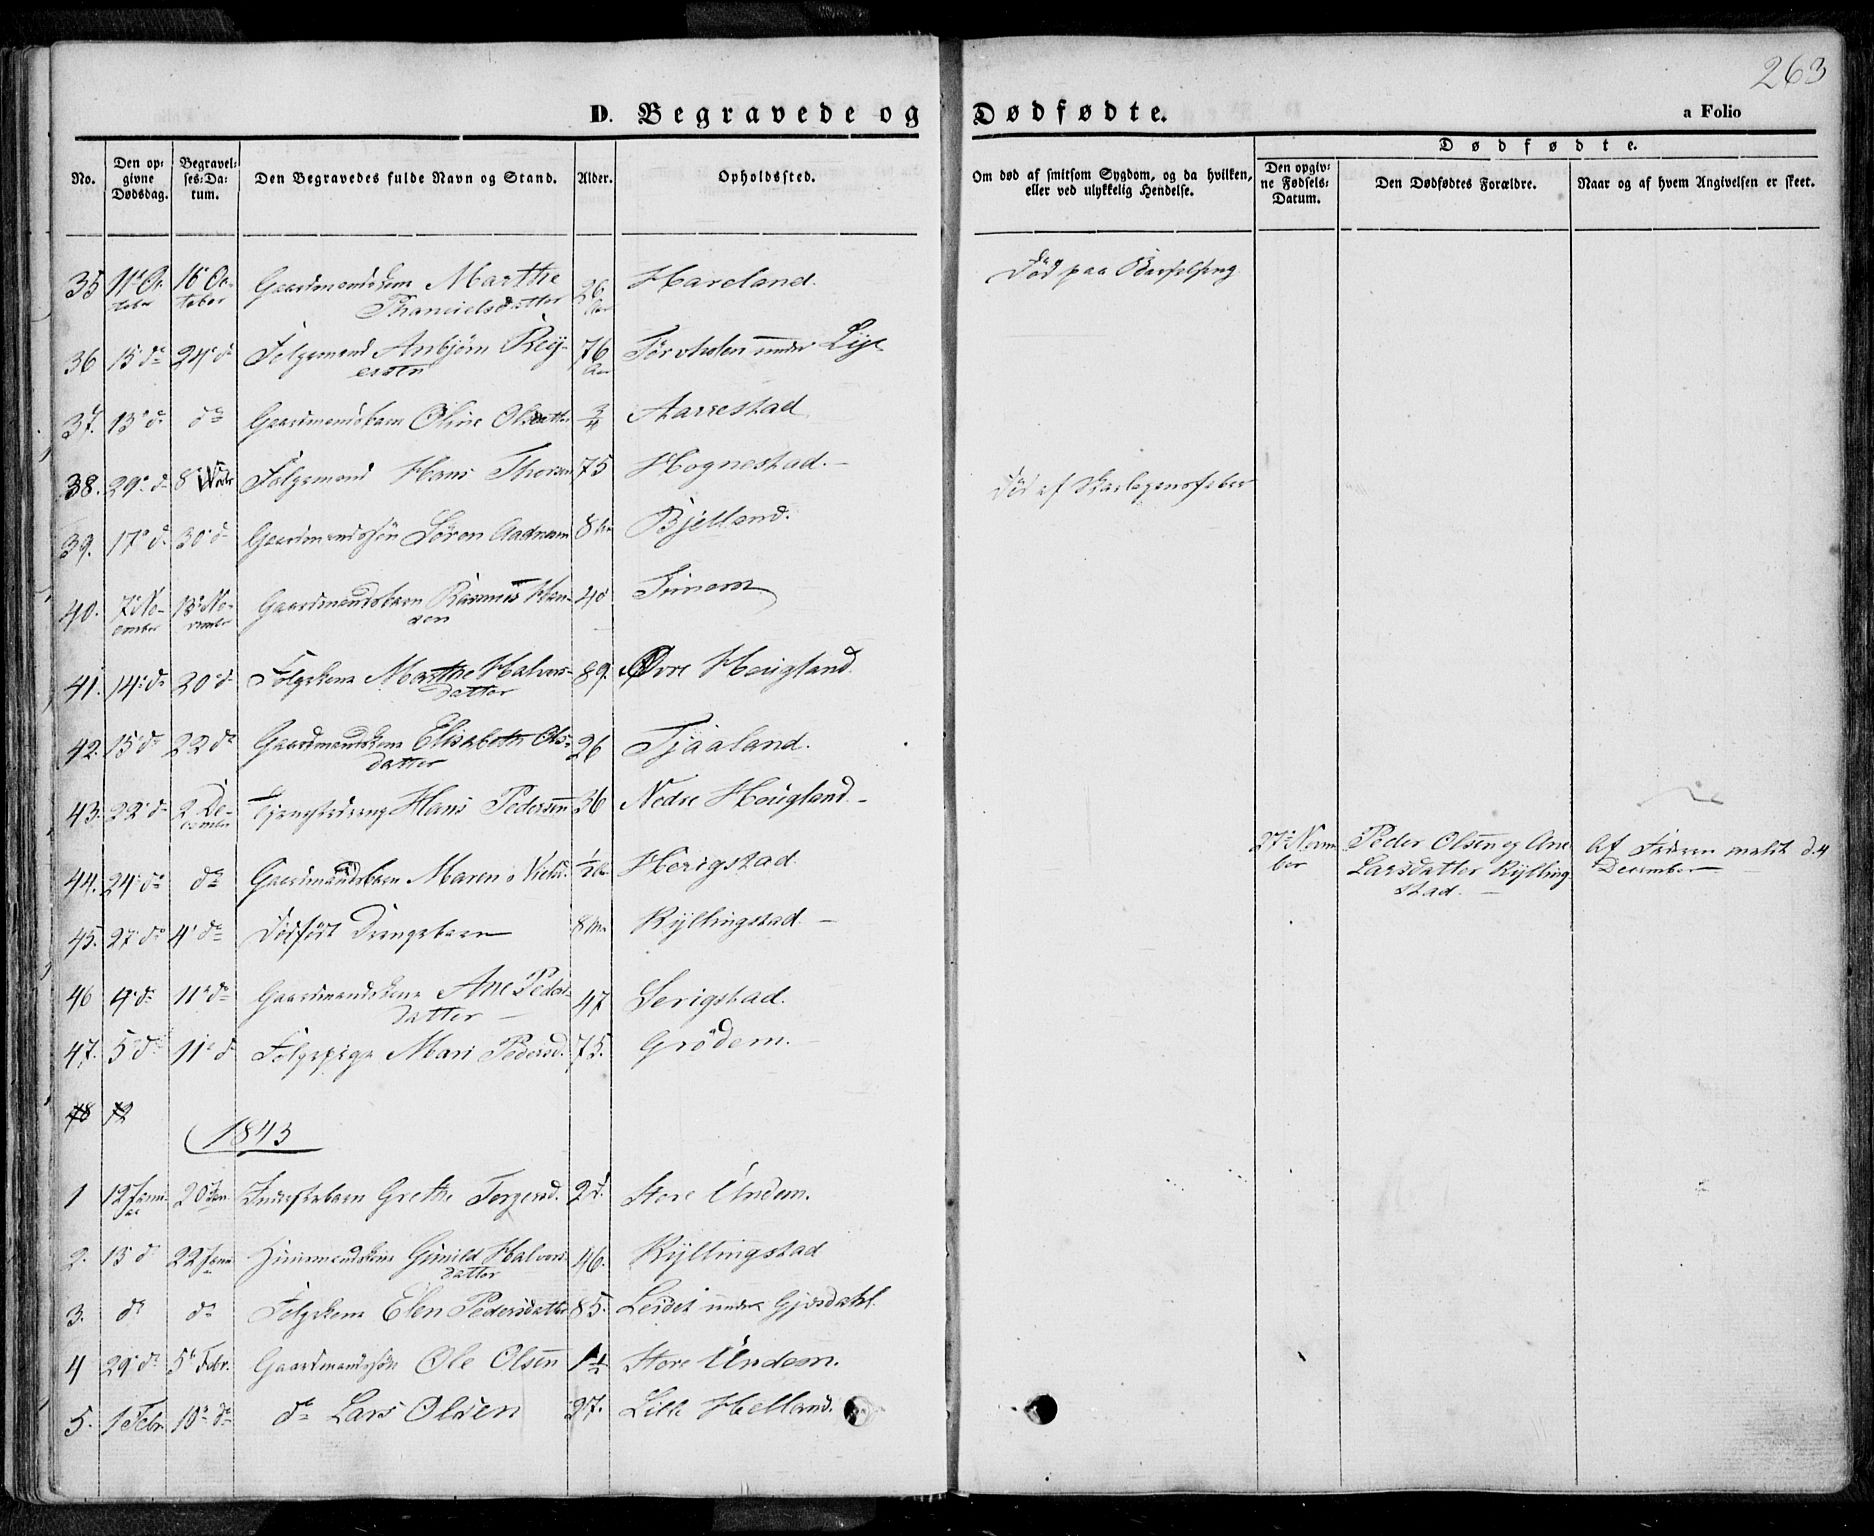 263
D. Begravede og Dødfødte.
a Folio
No.
Den opgivne Dødsdag.
Begravelses-Datum.
Den Begravedes fulde Navn og Stand.
Alder.
Opholdssted.
Om død af smitsom Sygdom, og da hvilken, eller ved ulykkelig Hendelse.
Dødfødte.
Den opgivne Fødsels-Datum.
Den Dødfødtes Forældre.
Naar og af hvem Angivelsen er skeet.
35 11' October 16' October Gaardmandskone Marthe Danielsdatter 26 Aar Hareland. Død paa Barselseng
36 15' do 24' do Folgemand Anbjørn Reijersen 76 Aar Torvholen under Lye
37. 13' d. do Gaardmandsbarn Oline Olsdatter 3/4 Aarrestad
38. 29' d. 8' Folgemand Hans Thorsen 75 Hognestad. Død af Skarlagensfeber
39. 17' d. 30' d. Gaardmandssøn Søren Aadnesen 8 Bjelland.
40. 7' November 13' November Gaardmandsbarn Rasmus Hansen Timem
41. 14' do 20' d. Folgekone Marthe Halvorsdatter 89. Øvre Hougland.
42. 15' do 22 do Gaardmandskone Elisabeth Olsdatter 26 Tjaaland.
43. 22' d. 2 December Hans Pedersen 36 Nedre Hougland.
44. 24' do do Gaardmandsbarn Maren Herigstad
45. 27' do 4' do Dødfødt Drengebarn Ryllingstad
27' November Peder Olsen og Ane Larsdatter Ryllingstad. Af Faderen meldt d. 4 December
46 4' do 11' do Gaardmandskone Ane Pedersdatter 47 Serigstad.
47. 5' do 11' d Folgepige Mari Pedersd. 75. Grødem.
48 12
1843
1 12 Januar 20 Jan Inderstebarn Grethe Torgersd. Store Undem.
2. 13 d 22 Janu Huusmandskone Gunild Halvorsdatter 46. Ryllingstad
3. do do Folgekone Elen Pedersdatter 85. Leidet under Gjesdahl.
4 29' do 5' Febr. Gaardmandssøn Ole Olsen Store Undem.
5. 1 Febr 10' do do Lars Olsen 27. Lille Helland.